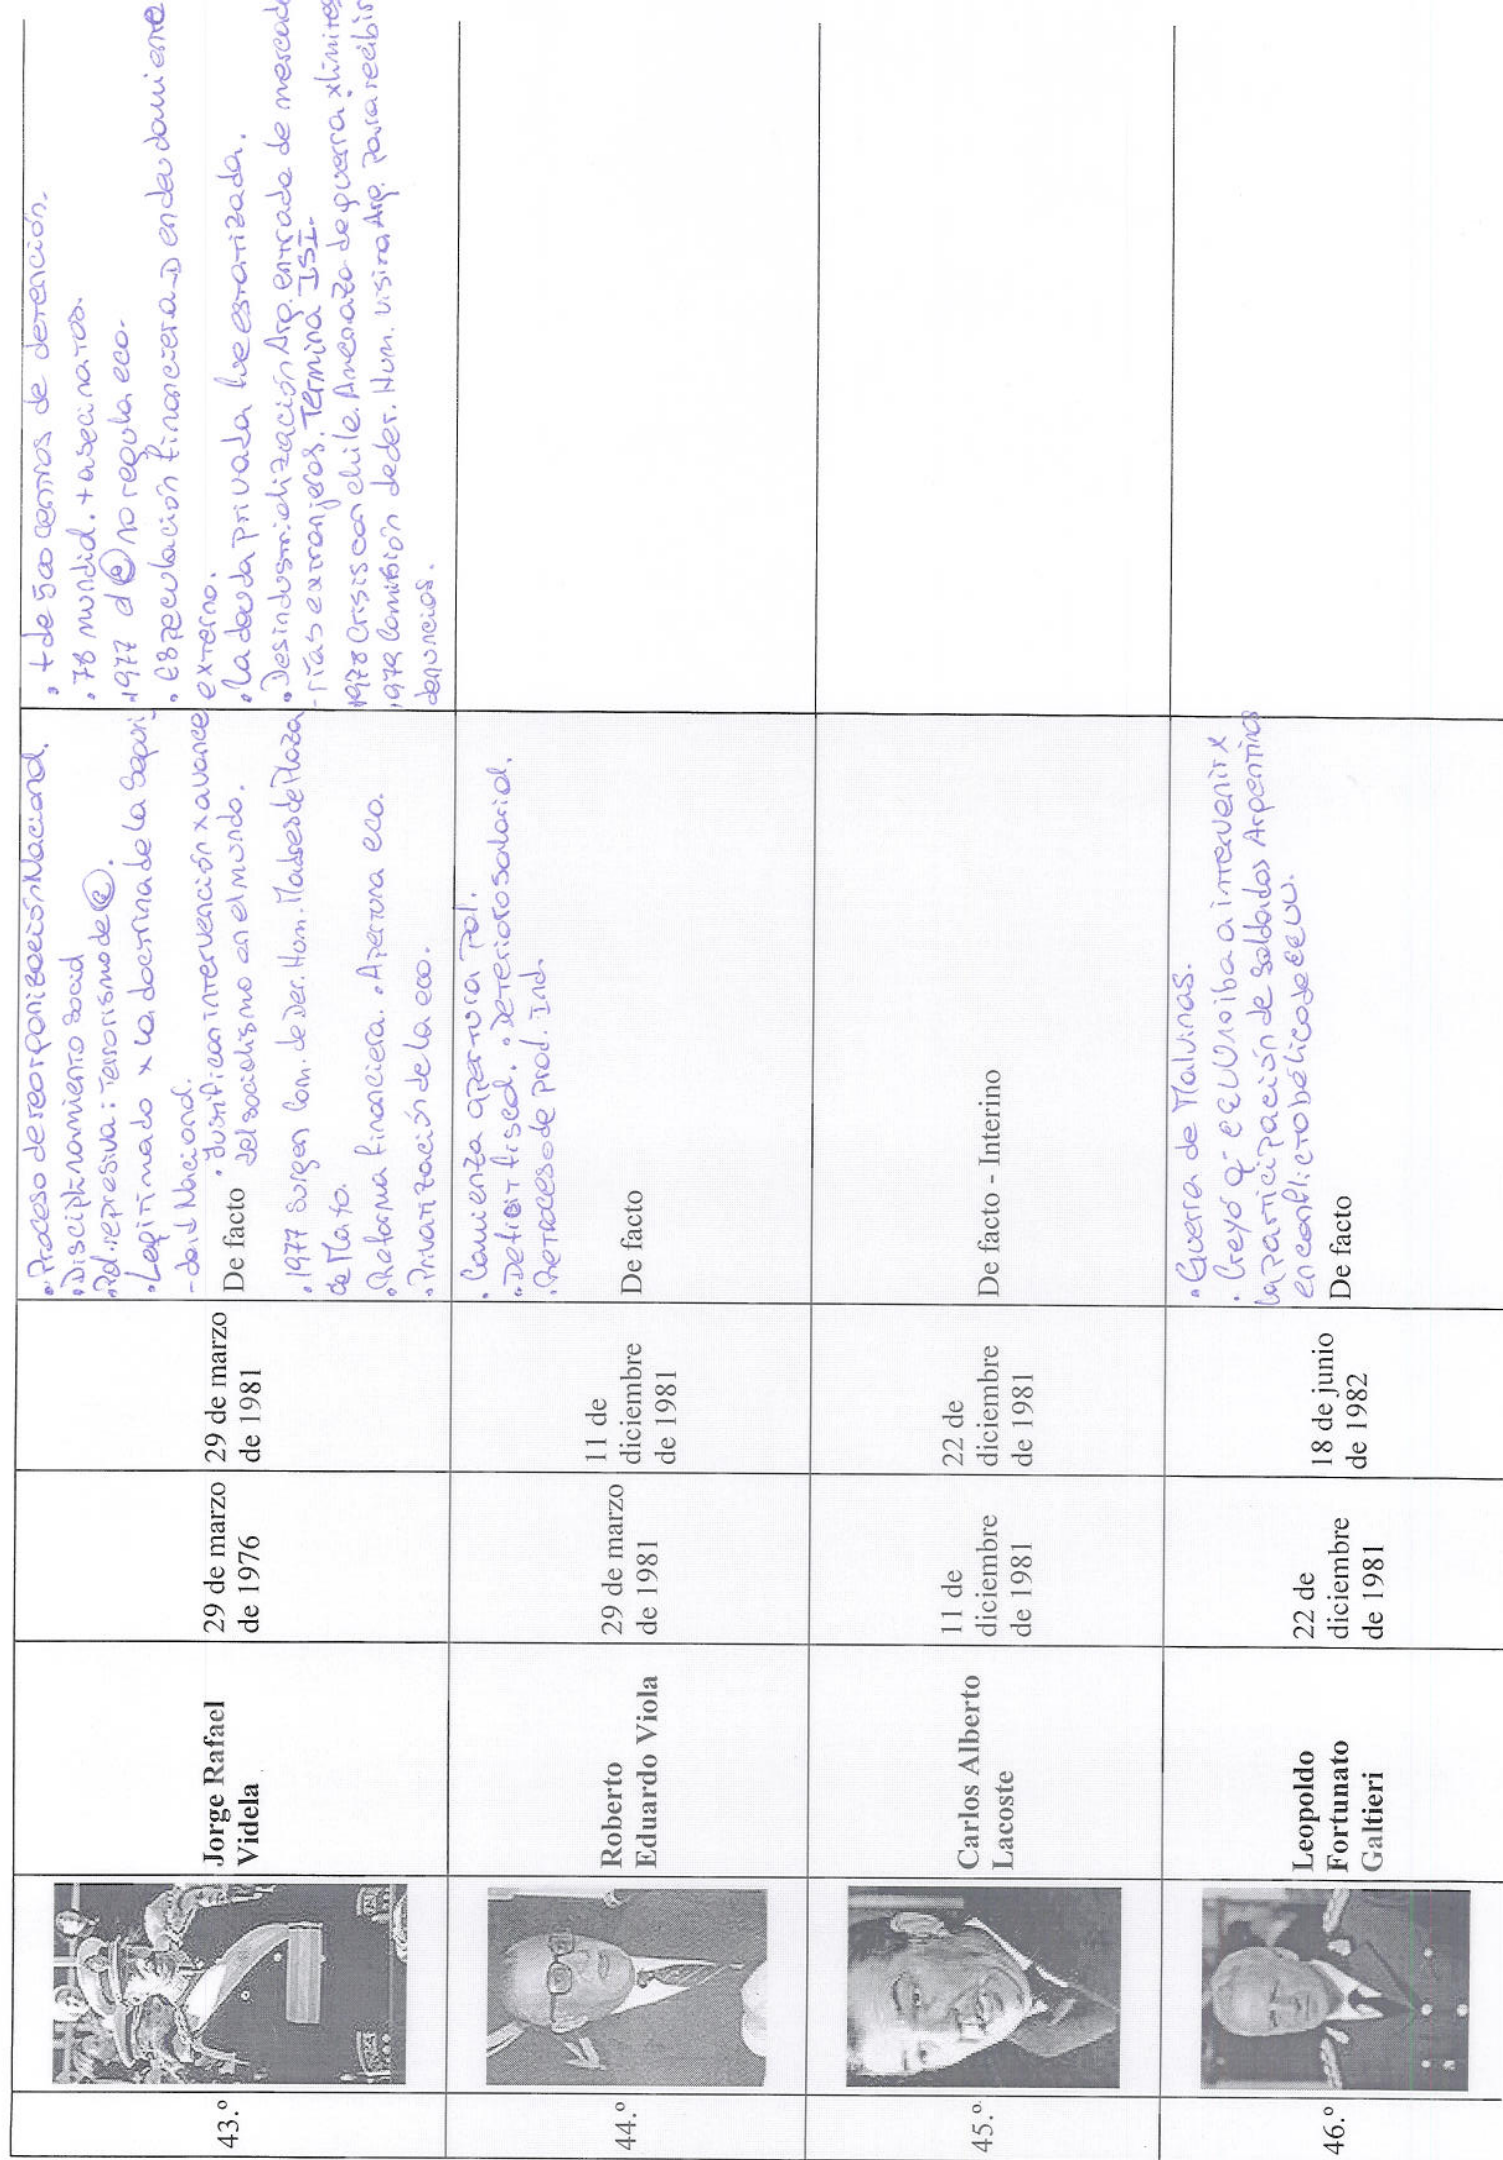 43.º
Jorge Rafael
Videla
29 de marzo
de 1976
29 de marzo
de 1981
• Proceso de reorganización Nacional.
• Disciplinamiento social
• Pol. represiva: Terrorismo de ⓔ.
• Legitimado x la doctrina de la Seguri
- dad Nacional.
• Justifican intervención x avance
del socialismo en el mundo.
De facto
• 1977 surgen Com. de Der. Hum. Madres de Plaza
de Mayo.
• Reforma financiera. • Apertura eco.
• Privatización de la eco.
• + de 500 centros de detención.
• 78 mundial. + asecinatos.
• 1977 el ⓔ no regula eco.
• Especulación financiera → endeudamiento
externo.
• La deuda privada fue estatizada.
• Desindustrialización Arg. entrada de mercade
- rías extranjeras. Termina ISI.
1978 Crisis con chile. Amenaza de guerra x límites
1979 Comisión de der. Hum. visina Arg. para recibir
denuncias.
44.º
Roberto
Eduardo Viola
29 de marzo
de 1981
11 de
diciembre
de 1981
• Comienza apertura Pol.
• Deficit fiscal. • Deterioro salarial.
• Retroceso de Prod. Ind.
De facto
45.º
Carlos Alberto
Lacoste
11 de
diciembre
de 1981
22 de
diciembre
de 1981
De facto - Interino
46.º
Leopoldo
Fortunato
Galtieri
22 de
diciembre
de 1981
18 de junio
de 1982
• Guerra de Malvinas.
• Creyó q' EEUU no iba a intervenir x
la participación de Soldados Argentinos
en conflicto bélico de EEUU.
De facto